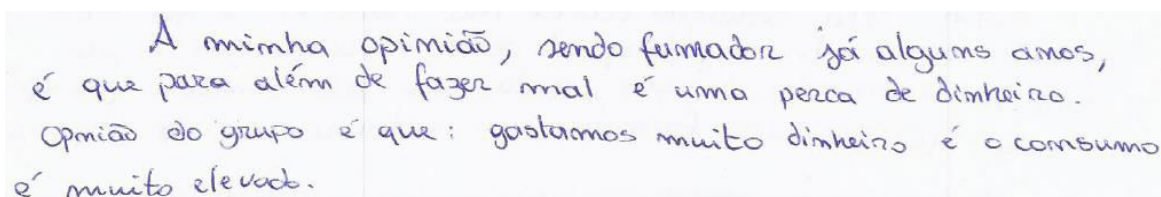 A minha opinião, sendo fumador já alguns anos,
é que para além de fazer mal é uma perca de dinheiro.
Opnião do grupo é que: gastamos muito dinheiro é o consumo
é muito elevado.